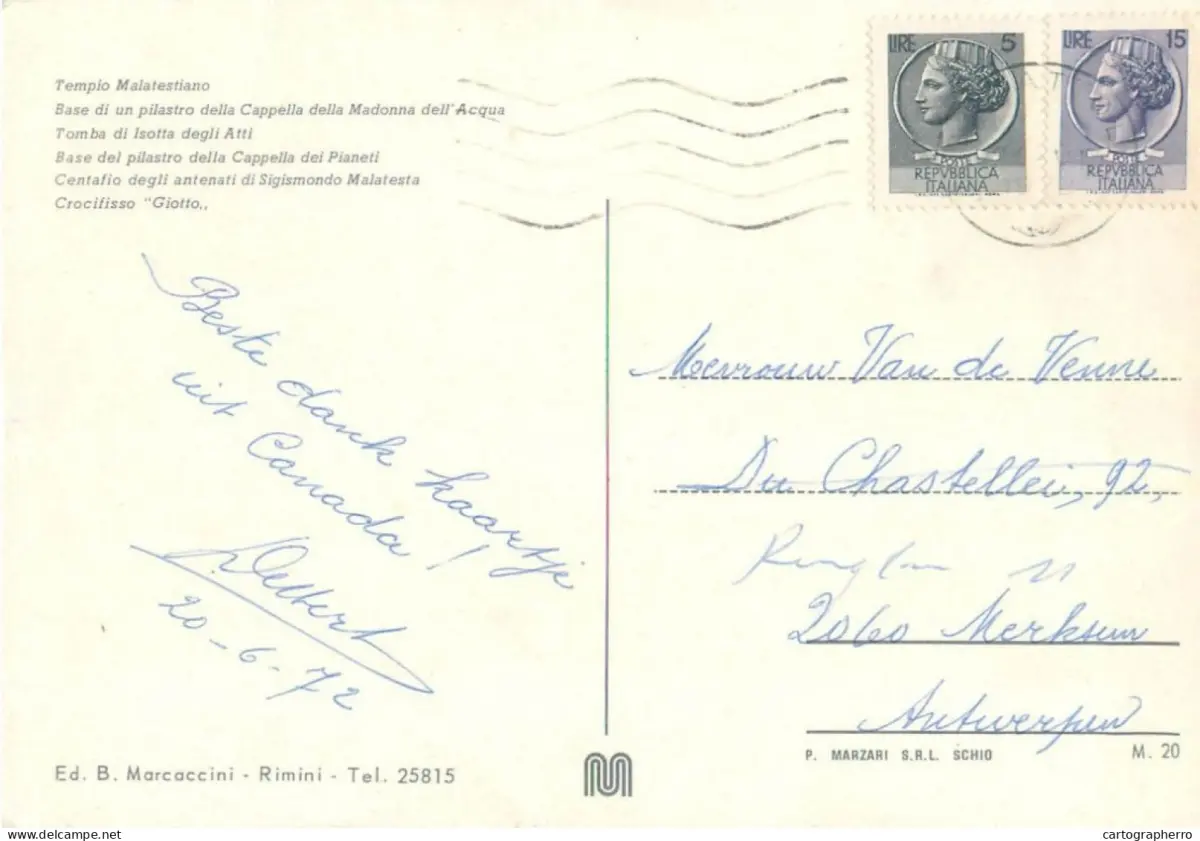 Tempio Malatestiano
Base di un pilastro della Cappella della Madonna dell'Acqua
Tomba di Isotta degli Atti
Base del pilastro della Cappella dei Pianeti
Centafio degli antenati di Sigismondo Malatesta
Crocifisso "Giotto,,
LIRE 5
POSTE
REPVBBLICA
ITALIANA
LIRE 15
POSTE
REPVBBLICA
ITALIANA
Beste dank kaartje
uit Canada!
20-6-72
Mevrouw Van de Venne
Du Chastellei, 92,
2060 Merksem
Antwerpen
Ed. B. Marcaccini - Rimini - Tel. 25815
P. MARZARI S.R.L. SCHIO
M. 20
www.delcampe.net
cartographerro